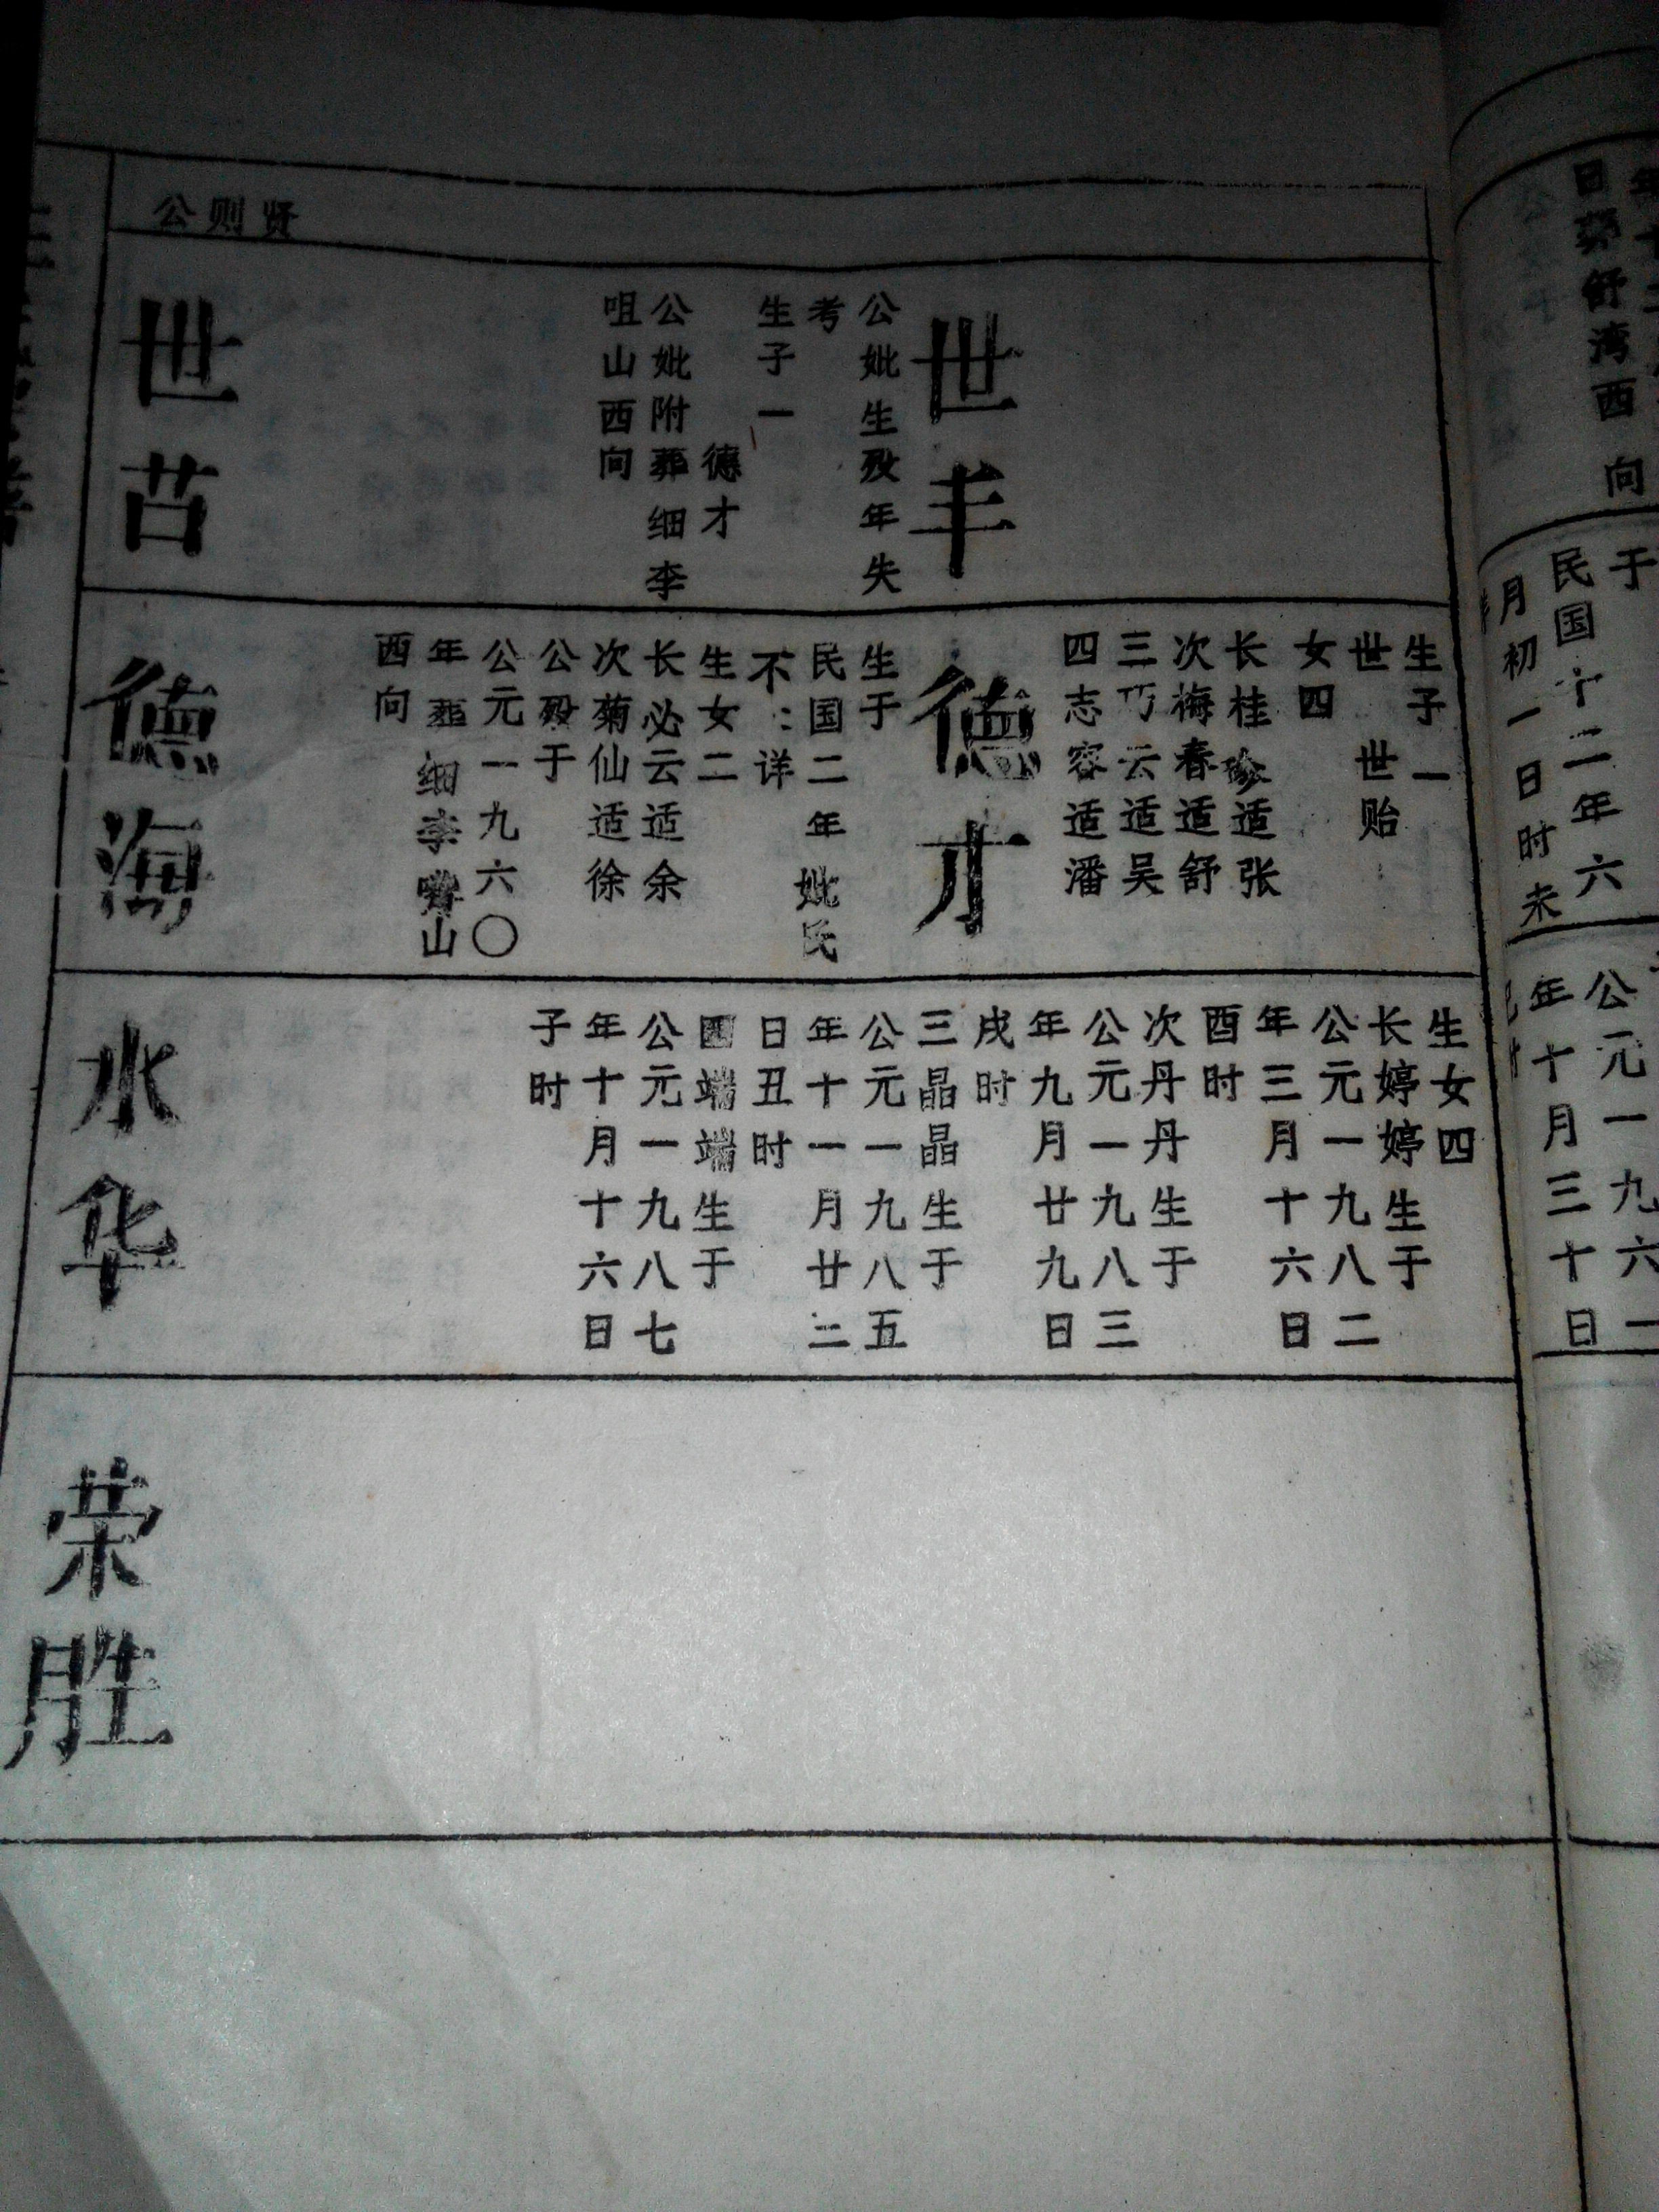 贤则公
世丰
公妣生殁年失
考
生子一
德才
公妣附葬细李
咀山西向
世苫
生子一
世 世贻
女四
长桂珍适张
次梅春适舒
三巧云适吴
四志容适潘
德才
生于
民国二年 妣氏
不:详
生女二
长必云适余
次菊仙适徐
公殁于
公元一九六〇
年葬细李嘴山
西向
德海
生女四
长婷婷生于
公元一九八二
年三月十六日
酉时
次丹丹生于
公元一九八三
年九月廿九日
戌时
三晶晶生于
公元一九八五
年十一月廿二
日丑时
四端端生于
公元一九八七
年十月十六日
子时
水华
荣胜
日葬舒湾西向
于
民国十二年六
月初一日时未
公元一九六一
年十月三十日